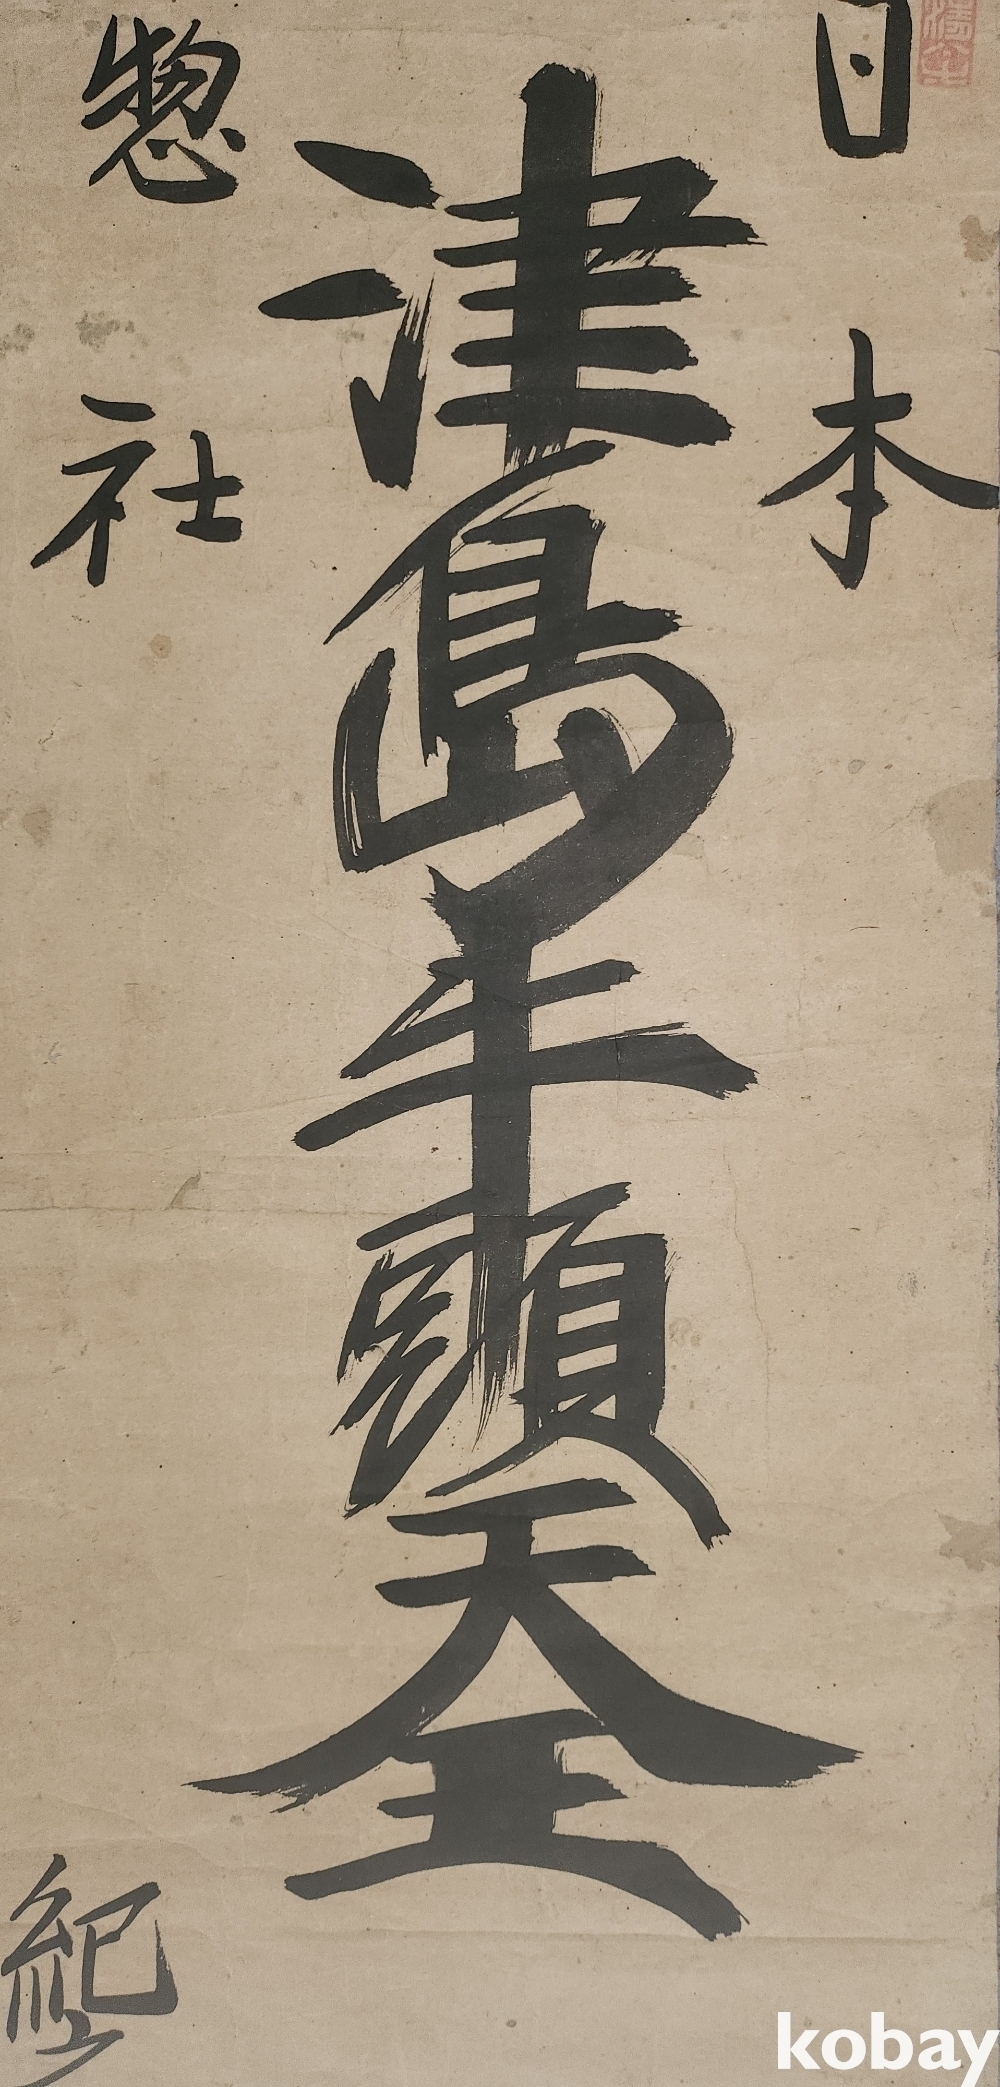 日本
津島牛頭天王
惣社
紀
kobay